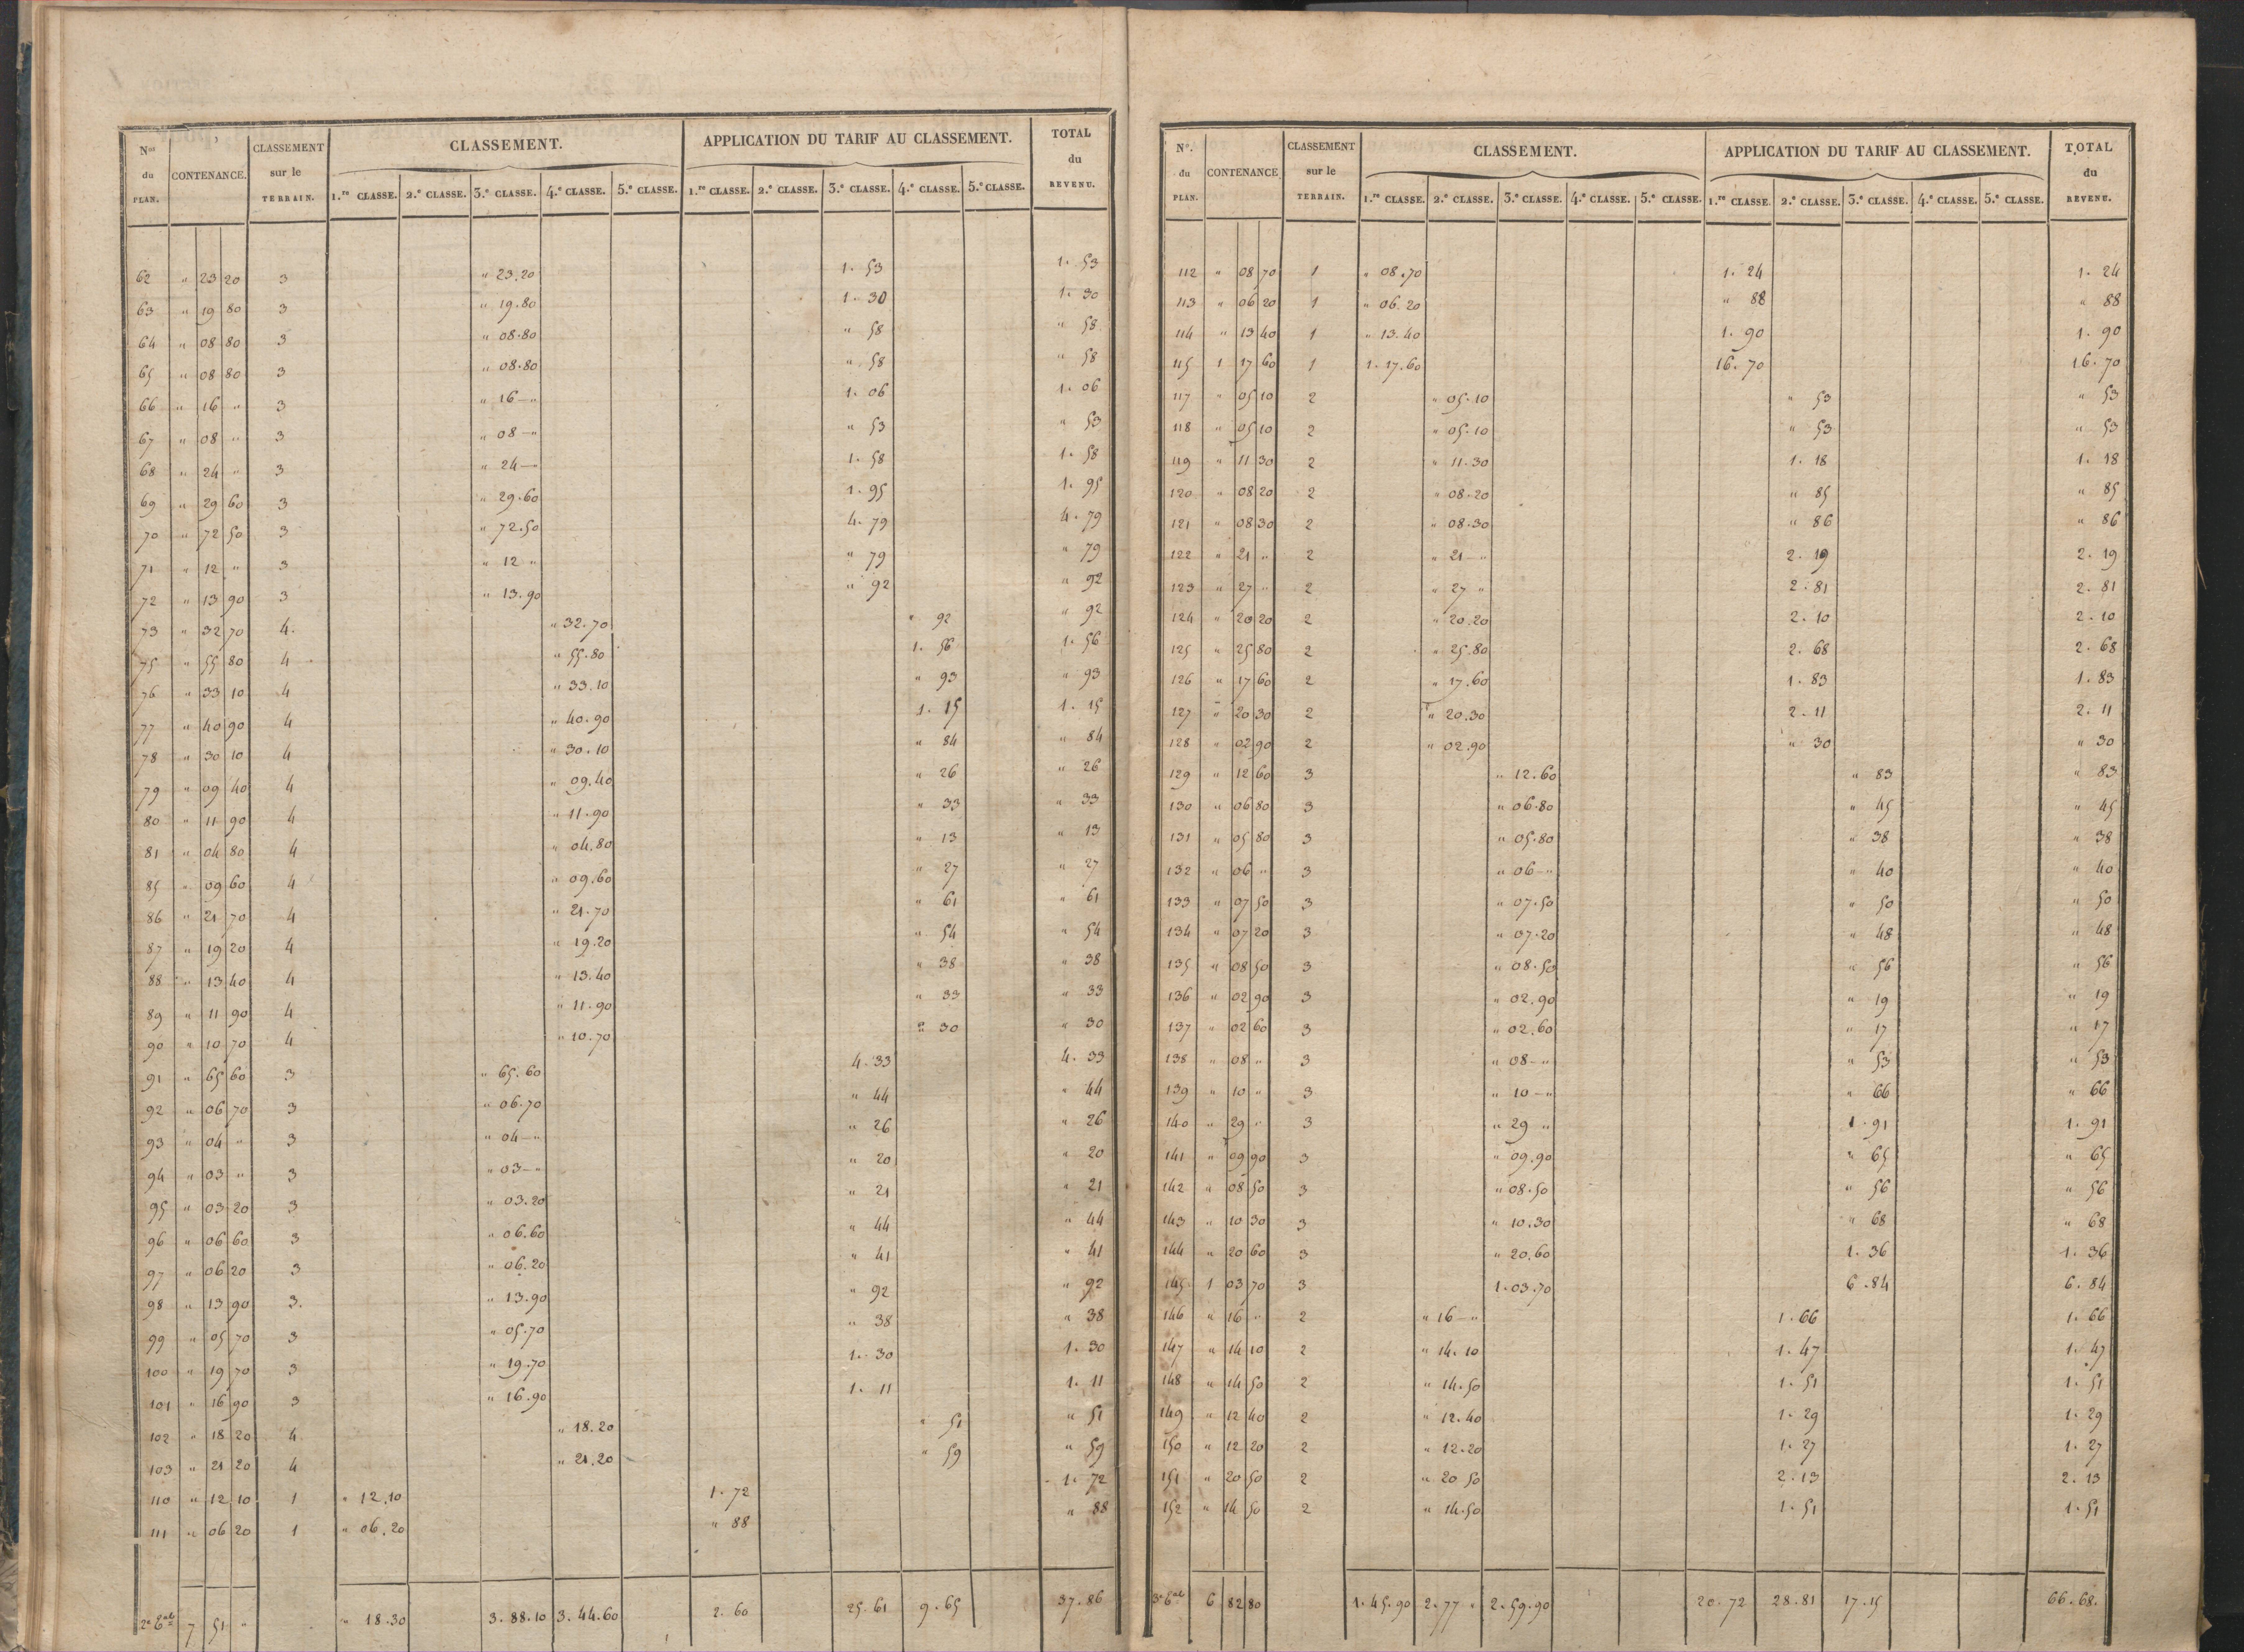 N.os du PLAN. CONTENANCE. CLASSEMENT sur le TERRAIN. CLASSEMENT. APPLICATION DU TARIF AU CLASSEMENT. TOTAL du REVENU.
1.re CLASSE. 2.e CLASSE. 3.e CLASSE. 4.e CLASSE. 5.e CLASSE. 1.re CLASSE. 2.e CLASSE. 3.e CLASSE. 4.e CLASSE. 5.e CLASSE.
62 " 23 20 3 " 23.20 1. 53 1. 53
63 " 19 80 3 " 19.80 1. 30 1. 30
64 " 08 80 3 " 08.80 " 58 " 58
65 " 08 80 3 " 08.80 " 58 " 58
66 " 16 " 3 " 16 — " 1. 06 1. 06
67 " 08 " 3 " 08 — " " 53 " 53
68 " 24 " 3 " 24 — " 1. 58 1. 58
69 " 29 60 3 " 29.60 1. 95 1. 95
70 " 72 50 3 " 72.50 4. 79 4. 79
71 " 12 " 3 " 12 " " 79 " 79
72 " 13 90 3 " 13.90 " 92 " 92
73 " 32 70 4. " 32.70 " 92 " 92
75 " 55 80 4 " 55.80 1. 56 1. 56
76 " 33 10 4 " 33.10 " 93 " 93
77 " 40 90 4 " 40.90 1. 15 1. 15
78 " 30 10 4 " 30.10 " 84 " 84
79 " 09 40 4 " 09.40 " 26 " 26
80 " 11 90 4 " 11.90 " 33 " 33
81 " 04 80 4 " 04.80 " 13 " 13
85 " 09 60 4 " 09.60 " 27 " 27
86 " 21 70 4 " 21.70 " 61 " 61
87 " 19 20 4 " 19.20 " 54 " 54
88 " 13 40 4 " 13.40 " 38 " 38
89 " 11 90 4 " 11.90 " 33 " 33
90 " 10 70 4 " 10.70 " 30 " 30
91 " 65 60 3 " 65.60 4. 33 4. 33
92 " 06 70 3 " 06.70 " 44 " 44
93 " 04 " 3 " 04 — " " 26 " 26
94 " 03 " 3 " 03 — " " 20 " 20
95 " 03 20 3 " 03.20 " 21 " 21
96 " 06 60 3 " 06.60 " 44 " 44
97 " 06 20 3 " 06.20 " 41 " 41
98 " 13 90 3. " 13.90 " 92 " 92
99 " 05 70 3 " 05.70 " 38 " 38
100 " 19 70 3 " 19.70 1. 30 1. 30
101 " 16 90 3 " 16.90 1. 11 1. 11
102 " 18 20 4 " 18.20 " 51 " 51
103 " 21 20 4 " 21.20 " 59 " 59
110 " 12 10 1 " 12.10 1. 72 1. 72
111 " 06 20 1 " 06.20 " 88 " 88
7 51 " " 18.30 3. 88.10 3. 44.60 2. 60 25. 61 9. 65 37. 86
N.o du PLAN. CONTENANCE CLASSEMENT sur le TERRAIN. CLASSEMENT. APPLICATION DU TARIF AU CLASSEMENT. TOTAL du REVENU.
1.re CLASSE. 2.e CLASSE. 3.e CLASSE. 4.e CLASSE. 5.e CLASSE. 1.re CLASSE. 2.e CLASSE. 3.e CLASSE. 4.e CLASSE. 5.e CLASSE.
112 " 08 70 1 " 08.70 1. 24 1. 24
113 " 06 20 1 " 06.20 " 88 " 88
114 " 13 40 1 " 13.40 1. 90 1. 90
115 1 17 60 1 1. 17.60 16. 70 16. 70
117 " 05 10 2 " 05.10 " 53 " 53
118 " 05 10 2 " 05.10 " 53 " 53
119 " 11 30 2 " 11.30 1. 18 1. 18
120 " 08 20 2 " 08.20 " 85 " 85
121 " 08 30 2 " 08.30 " 86 " 86
122 " 21 " 2 " 21 — " 2. 19 2. 19
123 " 27 " 2 " 27 " 2. 81 2. 81
124 " 20 20 2 " 20.20 2. 10 2. 10
125 " 25 80 2 " 25.80 2. 68 2. 68
126 " 17 60 2 " 17.60 1. 83 1. 83
127 " 20 30 2 " 20.30 2. 11 2. 11
128 " 02 90 2 " 02.90 " 30 " 30
129 " 12 60 3 " 12.60 " 83 " 83
130 " 06 80 3 " 06.80 " 45 " 45
131 " 05 80 3 " 05.80 " 38 " 38
132 " 06 " 3 " 06 — " " 40 " 40
133 " 07 50 3 " 07.50 " 50 " 50
134 " 07 20 3 " 07.20 " 48 " 48
135 " 08 50 3 " 08.50 " 56 " 56
136 " 02 90 3 " 02.90 " 19 " 19
137 " 02 60 3 " 02.60 " 17 " 17
138 " 08 " 3 " 08 — " " 53 " 53
139 " 10 " 3 " 10 — " " 66 " 66
140 " 29 " 3 " 29 " 1. 91 1. 91
141 " 09 90 3 " 09.90 " 65 " 65
142 " 08 50 3 " 08.50 " 56 " 56
143 " 10 30 3 " 10.30 " 68 " 68
144 " 20 60 3 " 20.60 1. 36 1. 36
145 1 03 70 3 1. 03.70 6. 84 6. 84
146 " 16 " 2 " 16 — " 1. 66 1. 66
147 " 14 10 2 " 14.10 1. 47 1. 47
148 " 14 50 2 " 14.50 1. 51 1. 51
149 " 12 40 2 " 12.40 1. 29 1. 29
150 " 12 20 2 " 12.20 1. 27 1. 27
151 " 20 50 2 " 20 50 2. 13 2. 13
152 " 14 50 2 " 14.50 1. 51 1. 51
6 82 80 1. 45.90 2. 77 " 2. 59.90 20. 72 28. 81 17. 15 66. 68.